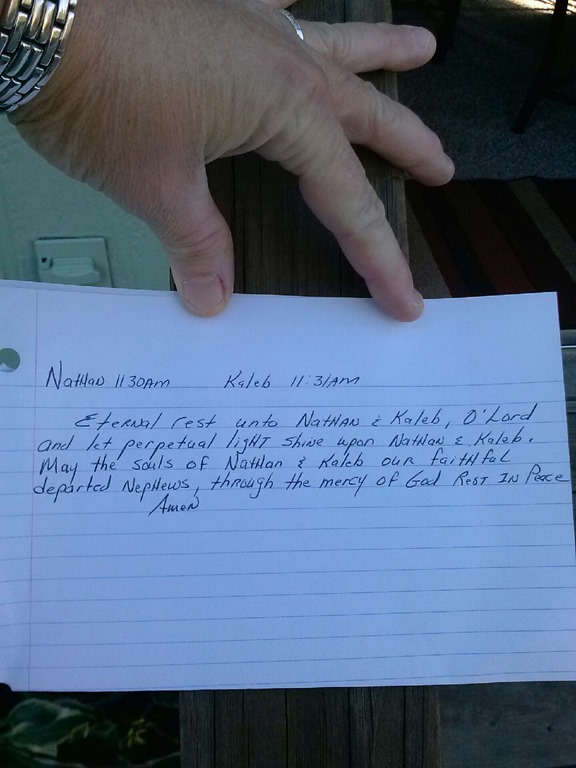 Nathan 1130AM Kaleb 11:31AM
Eternal rest unto Nathan & Kaleb, O'Lord
and let perpetual light shine upon Nathan & Kaleb.
May the souls of Nathan & Kaleb our faithful
departed Nephews, through the mercy of God Rest In Peace
Amen